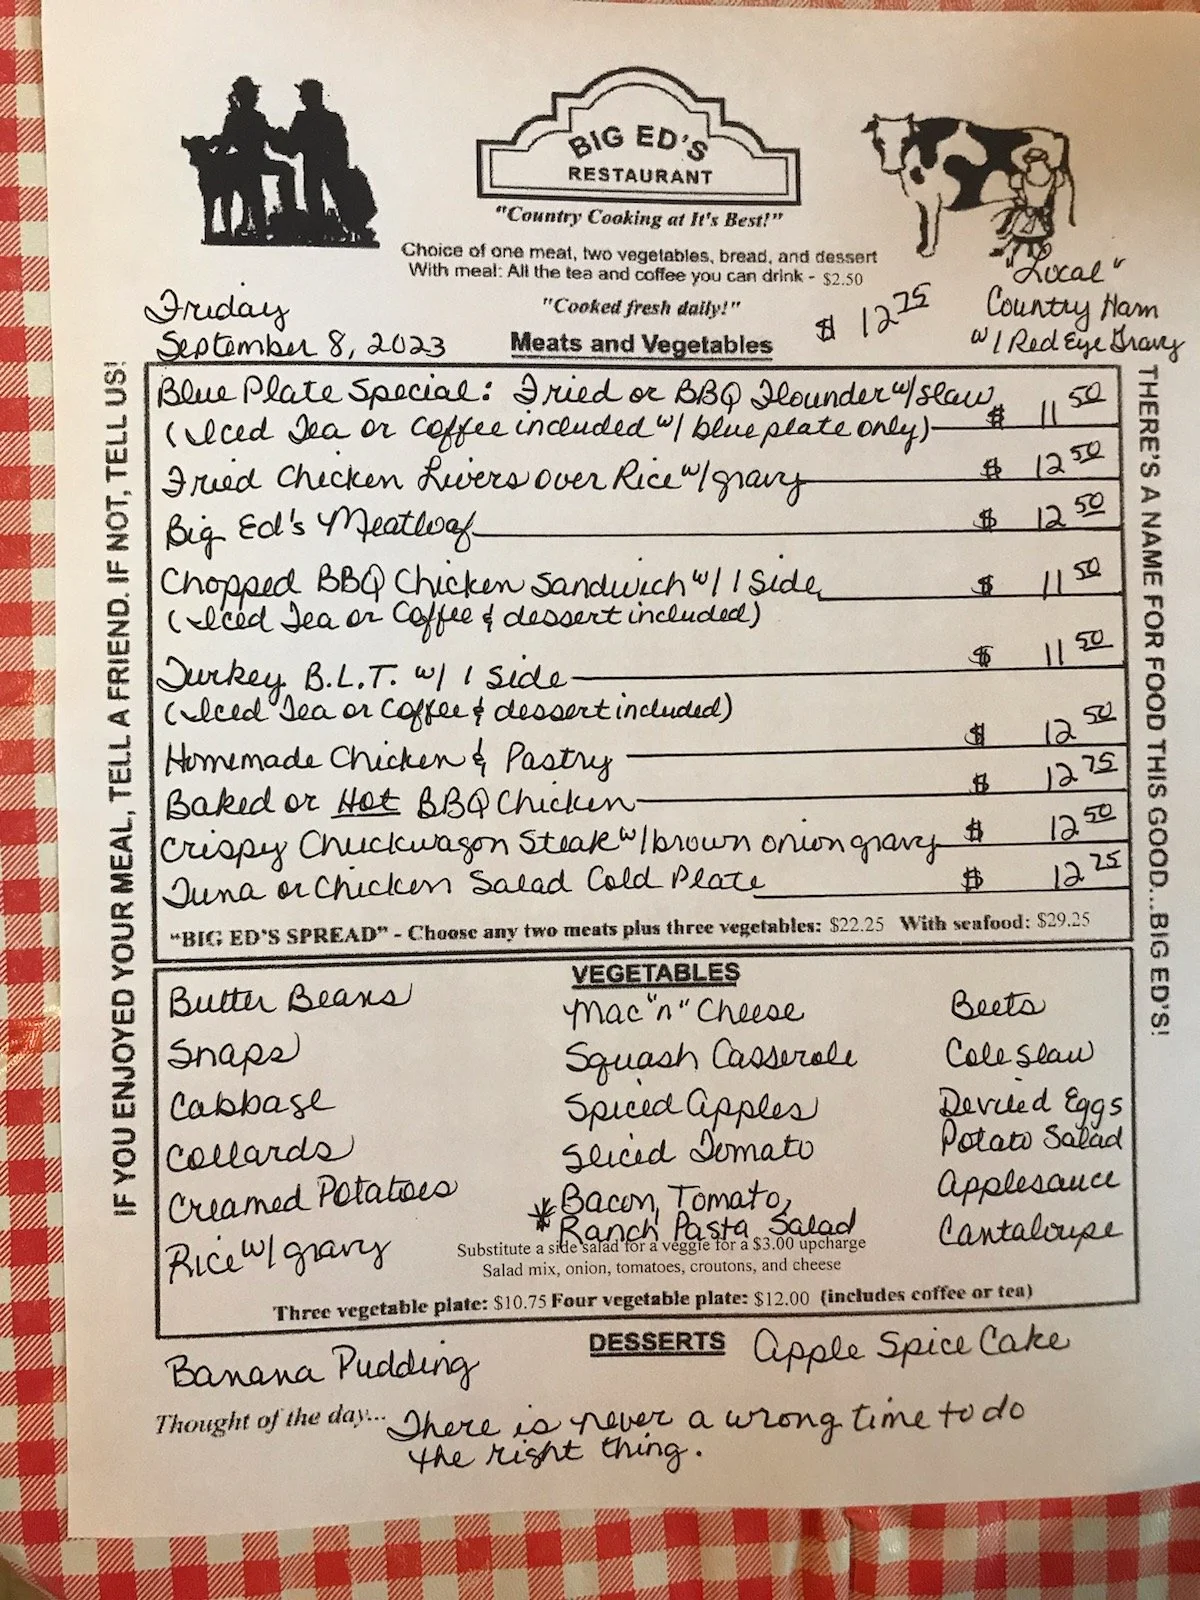 BIG ED'S
RESTAURANT
"Country Cooking at It's Best!"
Choice of one meat, two vegetables, bread, and dessert
With meal: All the tea and coffee you can drink - $2.50
"Cooked fresh daily!"
Friday
September 8, 2023
Meats and Vegetables
$ 12 75
"Local"
Country Ham
w/ Red Eye Gravy
IF YOU ENJOYED YOUR MEAL, TELL A FRIEND. IF NOT, TELL US!
THERE'S A NAME FOR FOOD THIS GOOD...BIG ED'S!
Blue Plate Special: Fried or BBQ Flounder w/ slaw
(Iced Tea or Coffee included w/ blue plate only) $ 11 50
Fried Chicken Livers over Rice w/ gravy $ 12 50
Big Ed's Meatloaf $ 12 50
Chopped BBQ Chicken Sandwich w/ 1 Side $ 11 50
(Iced Tea or Coffee & dessert included)
Turkey B.L.T. w/ 1 Side $ 11 50
(Iced Tea or Coffee & dessert included)
Homemade Chicken & Pastry $ 12 50
Baked or Hot BBQ Chicken $ 12 75
Crispy Chuckwagon Steak w/ brown onion gravy $ 12 50
Tuna or Chicken Salad Cold Plate $ 12 75
"BIG ED'S SPREAD" - Choose any two meats plus three vegetables: $22.25 With seafood: $29.25
VEGETABLES
Butter Beans
Snaps
Cabbage
Collards
Creamed Potatoes
Rice w/ gravy
Mac "n" Cheese
Squash Casserole
Spiced Apples
Sliced Tomato
* Bacon, Tomato,
* Ranch Pasta Salad
Beets
Cole Slaw
Deviled Eggs
Potato Salad
Applesauce
Cantaloupe
Substitute a side salad for a veggie for a $3.00 upcharge
Salad mix, onion, tomatoes, croutons, and cheese
Three vegetable plate: $10.75 Four vegetable plate: $12.00 (includes coffee or tea)
DESSERTS
Banana Pudding
Apple Spice Cake
Thought of the day... There is never a wrong time to do
the right thing.